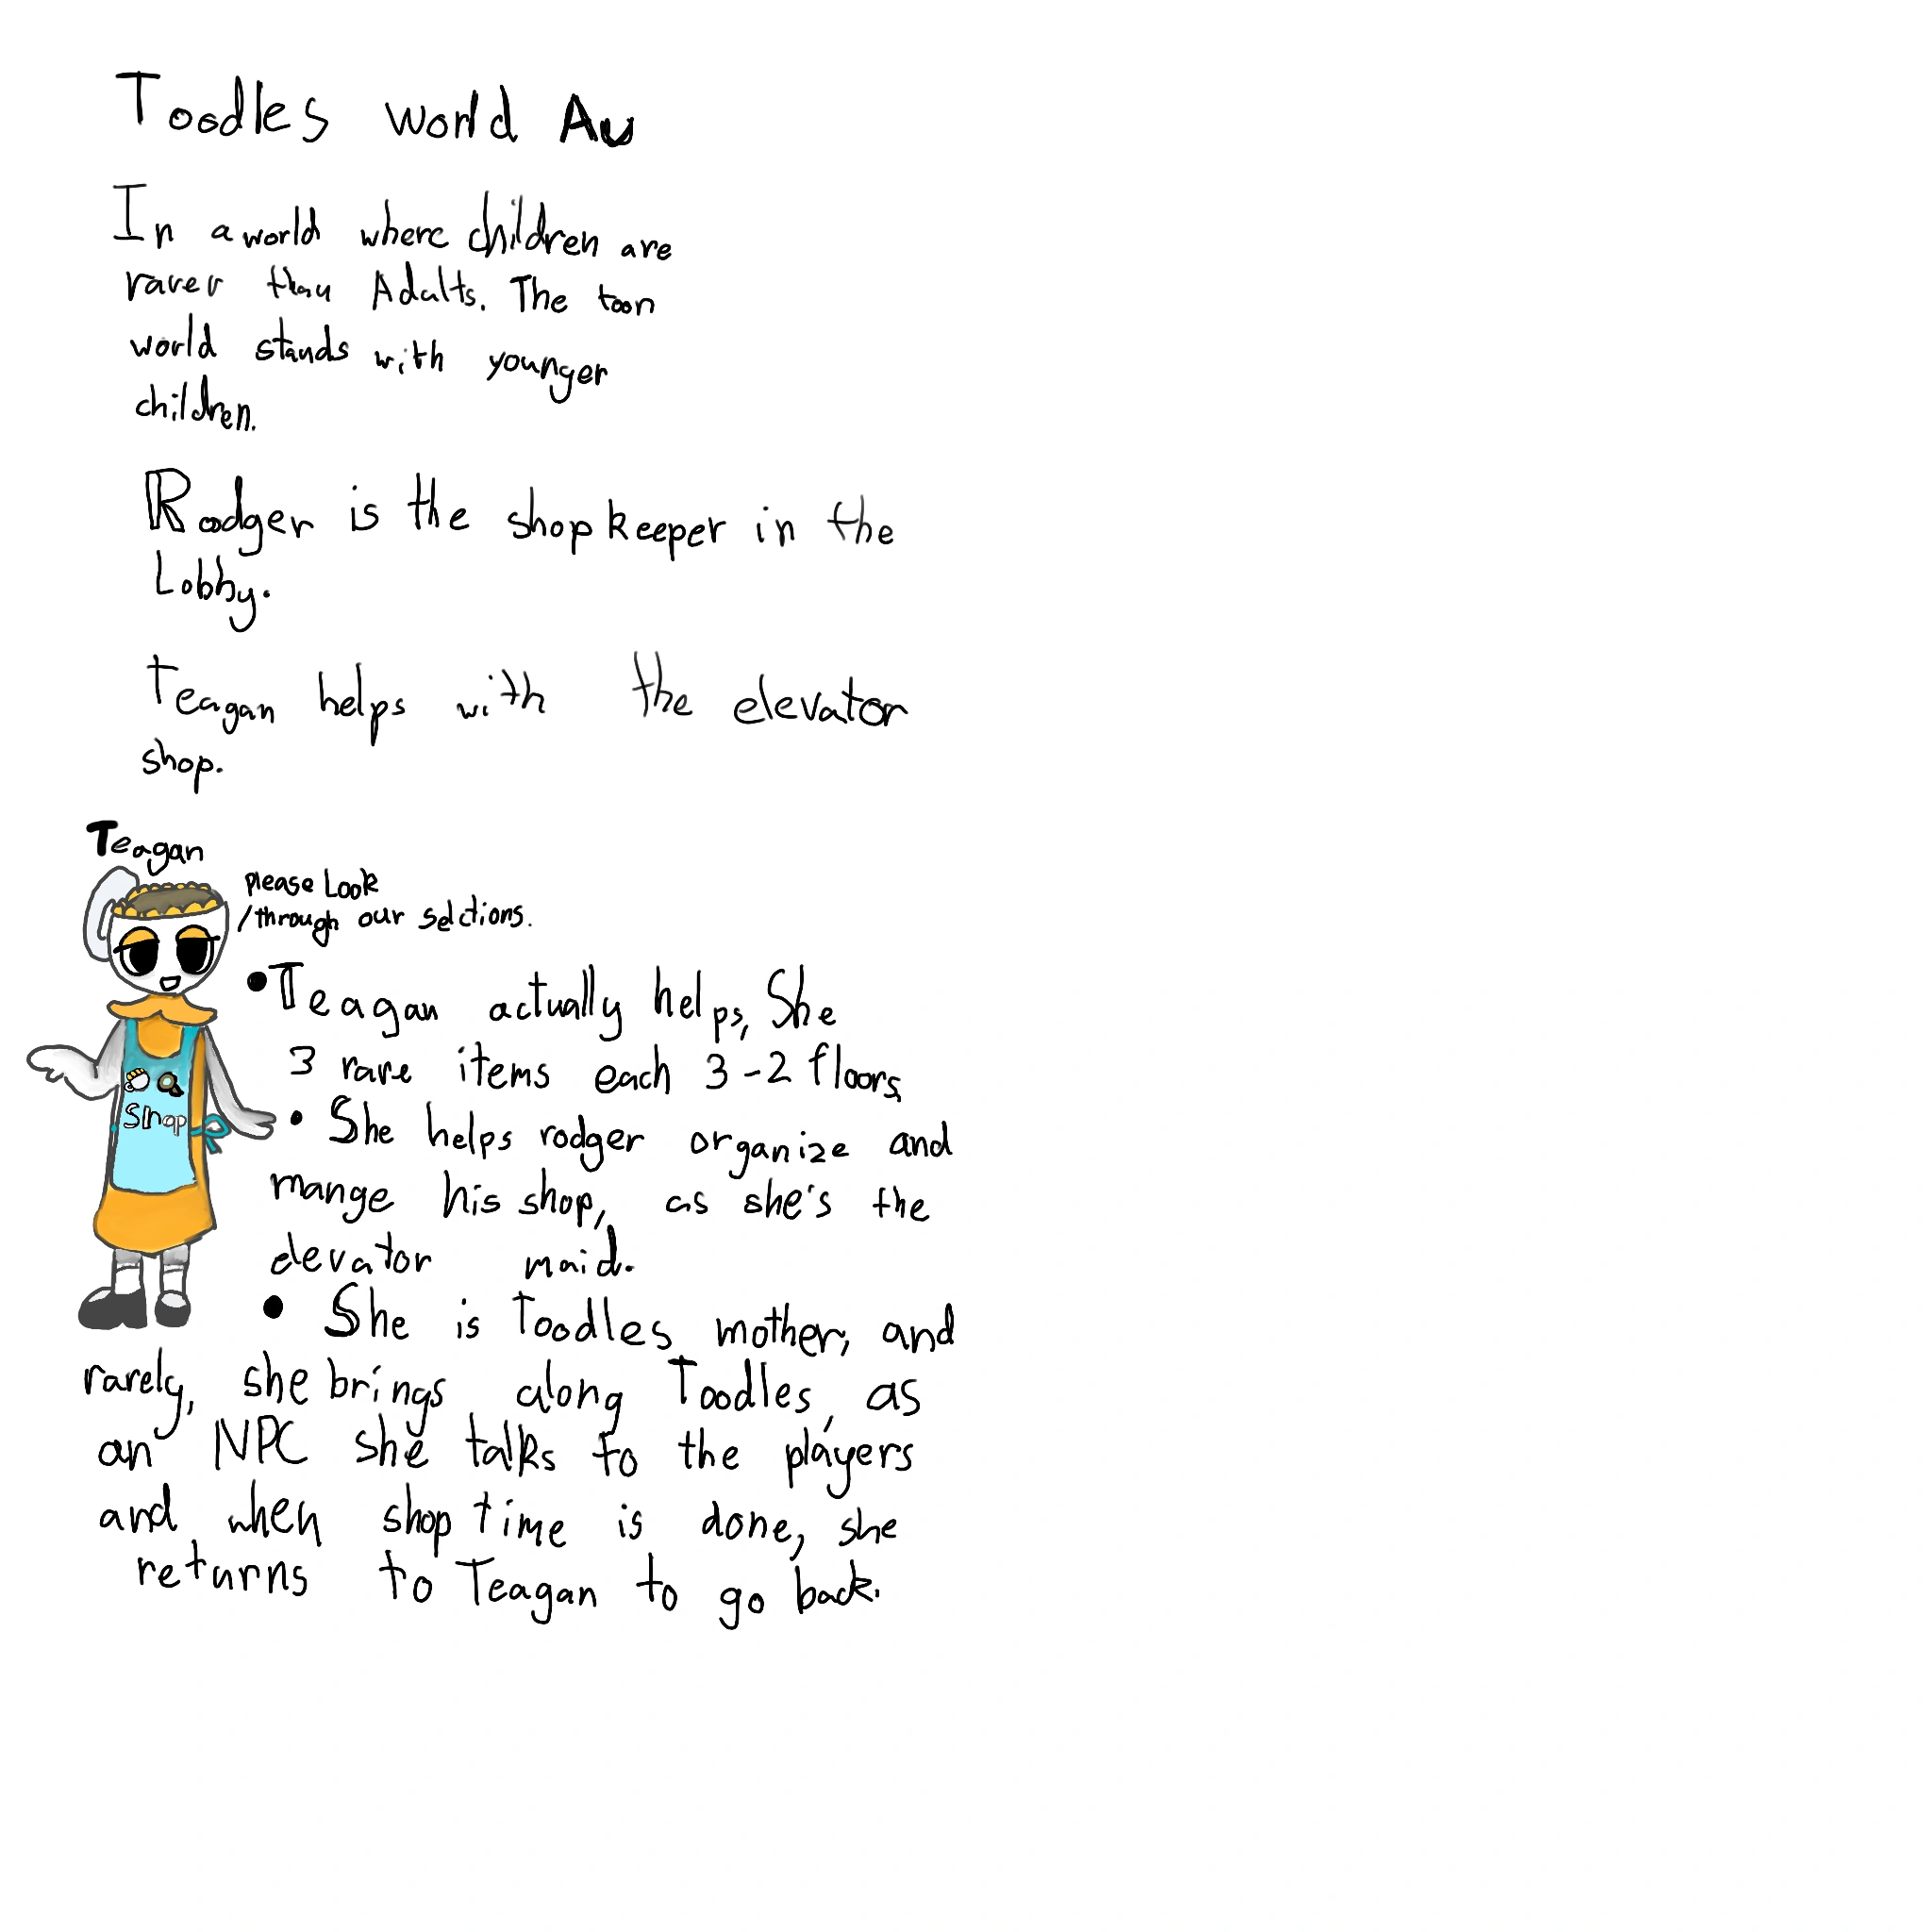 Toodles world Au
In a world where children are
rarer than Adults. The toon
world stands with younger
children.
Rodger is the shopkeeper in the
Lobby.
Teagan helps with the elevator
shop.
Teagan
please Look
through our selctions.
•Teagan actually helps, She
3 rare items each 3-2 floors,
• She helps rodger organize and
mange his shop, as she's the
elevator maid.
Shop
• She is Toodles mother, and
rarely, she brings along Toodles, as
an NPC she talks to the players
and when shop time is done, she
returns to Teagan to go back.